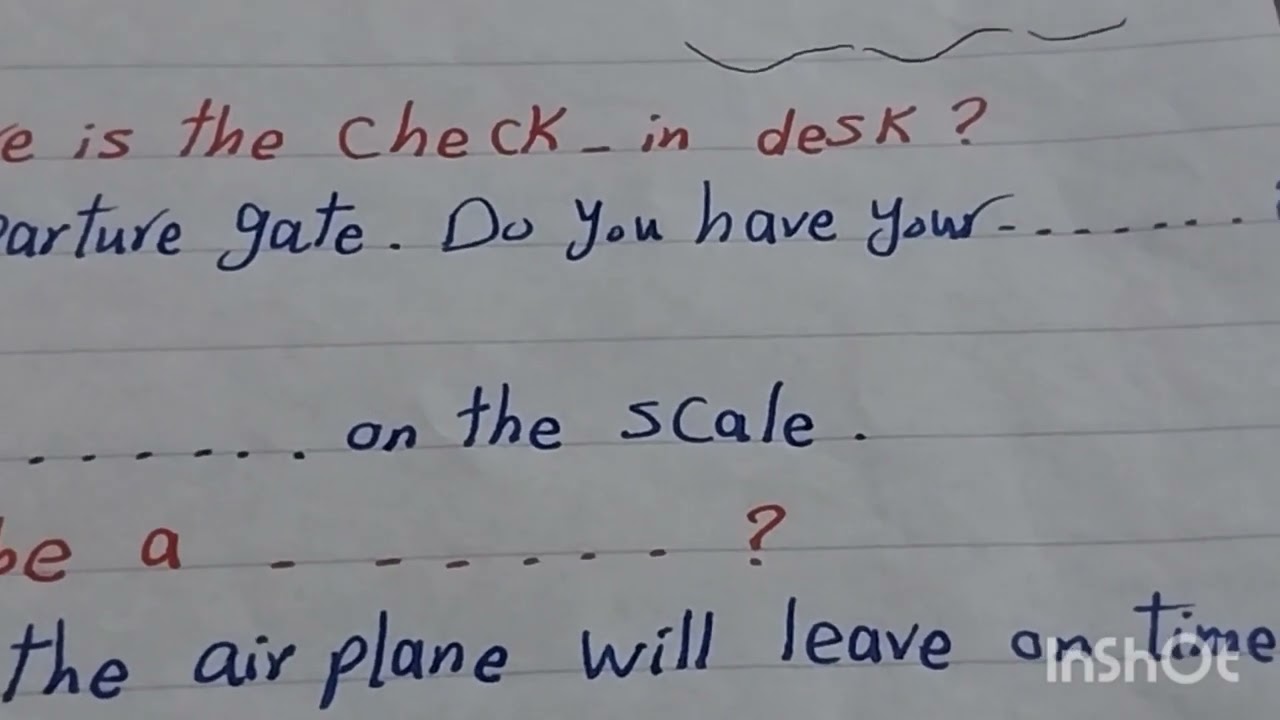 e is the check_in desk?
parture gate. Do you have your-.......
...... on the scale.
be a -------?
the airplane will leave on time
InShOt